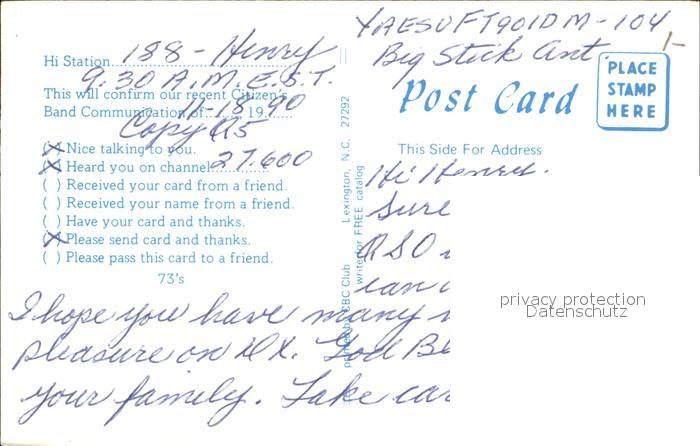 Hi Station 188 - Henry
9:30 A.M. E.S.T.
This will confirm our recent Citizen's
Band Communication of 11-18, 1990
Copy Q5
(X) Nice talking to you.
(X) Heard you on channel 27.600
( ) Received your card from a friend.
( ) Received your name from a friend.
( ) Have your card and thanks.
(X) Please send card and thanks.
( ) Please pass this card to a friend.
73's
I hope you have many
pleasure on DX. God
your family. Take
printed by CBC Club Lexington, N.C. 27292
write for FREE catalog
YAESU FT901DM - 104
Big Stick Ant.
1-
Post Card
PLACE
STAMP
HERE
This Side For Address
Hi Henry.
Sure
QSO
can
privacy protection
Datenschutz